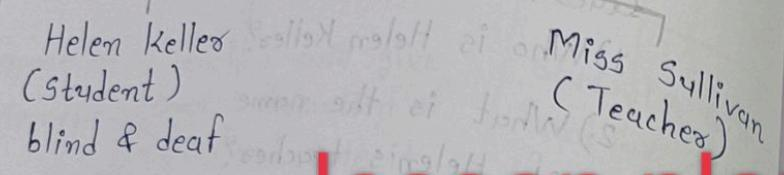 Helen Keller
(Student)
blind & deaf
Miss Sullivan
(Teacher)